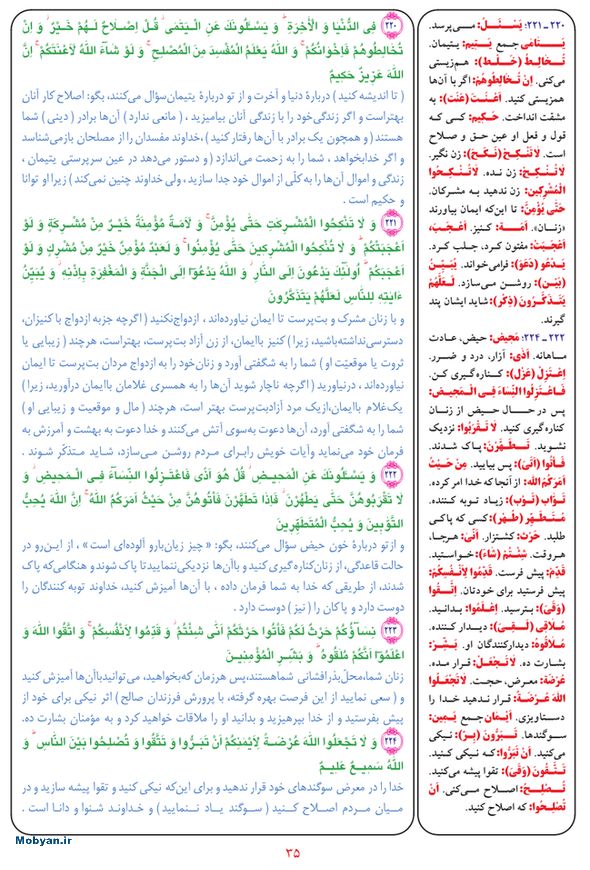 ۲۲۰ ـ ۲۲۱: یَسْئَلُ: می‌پرسد.
یَتامی جمع یَتیم: یتیمان.
تُخالِطُ (خَلَطَ): هم‌زیستی
می‌کنی. اِنْ تُخالِطُوهُمْ: اگر با آن‌ها
همزیستی کنید. اَعْنَتَ (عَنَتَ): به
مشقت انداخت. حَکیم: کسی که
قول و فعل او عین حق و صلاح
است. لا تَنْکِحْ (نَکَحَ): زن نگیر.
لا تُنْکِحْ: زن نده. لا تُنْکِحُوا
الْمُشْرِکینَ: زن ندهید به مشرکان.
حَتّی یُؤْمِنَّ: تا این‌که ایمان بیاورند
«زنان». اَمَة: کنیز. اَعْجَبَ،
اَعْجَبَتْ: مفتون کرد، جلب کرد.
یَدْعُو (دَعَوَ): فرامی‌خواند. یُبَیِّنُ
(بَیَنَ): روشن می‌سازد. لَعَلَّهُمْ
یَتَذَکَّرُونَ (ذِکْر): شاید ایشان پند
گیرند.
۲۲۲ ـ ۲۲۴: مَحیض: حیض، عادت
ماهانه. اَذًی: آزار، درد و ضرر.
اِعْتَزِلْ (عَزَلَ): کناره‌گیری کن.
فَاعْتَزِلُوا النِّساءَ فِی الْمَحیضِ:
پس در حال حیض از زنان
کناره‌گیری کنید. لا تَقْرَبُوا: نزدیک
نشوید. تَطَهَّرْنَ: پاک شدند.
فَأْتُوا (اَتَیَ): پس بیایید. مِنْ حَیْثُ
اَمَرَکُمُ اللهُ: از آنجا که خدا امر کرده.
تَوّاب (تَوَبَ): زیاد توبه کننده.
مُتَطَهِّر (طَهَرَ): کسی که پاکی
طلبد. حَرْث: کشتزار. اَنّی: هرجا،
هروقت. شِئْتُمْ (شَاءَ): خواستید.
قَدِّمْ: پیش فرست. قَدِّمُوا لِاَنْفُسِکُمْ:
پیش فرستید برای خودتان. اِتَّقُوا
(وَقَیَ): بترسید. اِعْلَمُوا: بدانید.
مُلاقی (لَقِیَ): دیدار کننده.
مُلاقُوهُ: دیدارکنندگان او. بَشِّرْ:
بشارت ده. لا تَجْعَلْ: قرار مده.
عُرْضَة: معرض، حجت. لا تَجْعَلُوا
اللهَ عُرْضَةً: قرار ندهید خدا را
دستاویزی. اَیْمان جمع یَمین:
سوگندها. تَبَرُّونَ (بِرّ): نیکی
می‌کنید. اَنْ تَبَرُّوا: که نیکی کنید.
تَتَّقُونَ (وَقَیَ): تقوا پیشه می‌کنید.
تُصْلِحُ: اصلاح می‌کنی. اَنْ
تُصْلِحُوا: که اصلاح کنید.
۲۲۰ فِی الدُّنْیَا وَ الْآخِرَةِ ۗ وَ یَسْئَلُونَكَ عَنِ الْیَتٰمٰی ۖ قُلْ اِصْلاحٌ لَهُمْ خَیْرٌ ۖ وَ اِنْ
تُخَالِطُوهُمْ فَاِخْوَانُکُمْ ۚ وَ اللهُ یَعْلَمُ الْمُفْسِدَ مِنَ الْمُصْلِحِ ۚ وَ لَوْ شَآءَ اللهُ لَاَعْنَتَکُمْ ۚ اِنَّ
اللهَ عَزِیزٌ حَکِیمٌ
( تا اندیشه کنید ) دربارۀ دنیا و آخرت و از تو دربارۀ یتیمان‌سؤال می‌کنند، بگو: اصلاح کار آنان
بهتراست و اگر زندگی‌خود را با زندگی آنان بیامیزید ، ( مانعی ندارد ) آن‌ها برادر ( دینی ) شما
هستند ( و همچون یک برادر با آن‌ها رفتار کنید ) ،خداوند مفسدان را از مصلحان بازمی‌شناسد
و اگر خدابخواهد ، شما را به زحمت می‌اندازد ( و دستور می‌دهد در عین سرپرستی یتیمان ،
زندگی و اموال آن‌ها را به‌کلّی از اموال خود جدا سازید ، ولی خداوند چنین نمی‌کند ) زیرا او توانا
و حکیم است .
۲۲۱ وَ لَا تَنْکِحُوا الْمُشْرِکٰتِ حَتّٰی یُؤْمِنَّ ۚ وَ لَاَمَةٌ مُؤْمِنَةٌ خَیْرٌ مِنْ مُشْرِکَةٍ وَ لَوْ
اَعْجَبَتْکُمْ ۗ وَ لَا تُنْکِحُوا الْمُشْرِکِینَ حَتّٰی یُؤْمِنُوا ۚ وَ لَعَبْدٌ مُؤْمِنٌ خَیْرٌ مِنْ مُشْرِكٍ وَ لَوْ
اَعْجَبَکُمْ ۗ اُولٰٓئِكَ یَدْعُونَ اِلَی النَّارِ ۖ وَ اللهُ یَدْعُوٓا اِلَی الْجَنَّةِ وَ الْمَغْفِرَةِ بِاِذْنِهِ ۖ وَ یُبَیِّنُ
ءَایٰتِهِ لِلنَّاسِ لَعَلَّهُمْ یَتَذَکَّرُونَ
و با زنان مشرک و بت‌پرست تا ایمان نیاورده‌اند ، ازدواج‌نکنید ( اگرچه جزبه ازدواج با کنیزان،
دسترسی‌نداشته‌باشید، زیرا ) کنیز باایمان، از زن آزاد بت‌پرست، بهتراست، هرچند ( زیبایی یا
ثروت یا موقعیّت او ) شما را به شگفتی آورد و زنان‌خود را به ازدواج مردان بت‌پرست تا ایمان
نیاورده‌اند ، درنیاورید ( اگرچه ناچار شوید آن‌ها را به همسری غلامان باایمان درآورید، زیرا )
یک‌غلام باایمان،ازیک مرد آزادبت‌پرست بهتر است، هرچند ( مال و موقعیت و زیبایی او )
شما را به شگفتی آورد، آن‌ها دعوت به‌سوی آتش می‌کنند و خدا دعوت به بهشت و آمرزش به
فرمان خود می‌نماید وآیات خویش رابرای مردم روشن می‌سازد، شاید مـتذکّر شوند .
۲۲۲ وَ یَسْئَلُونَكَ عَنِ الْمَحِیضِ ۖ قُلْ هُوَ اَذًی فَاعْتَزِلُوا النِّسَآءَ فِی الْمَحِیضِ ۖ وَ
لَا تَقْرَبُوهُنَّ حَتّٰی یَطْهُرْنَ ۖ فَاِذَا تَطَهَّرْنَ فَأْتُوهُنَّ مِنْ حَیْثُ اَمَرَکُمُ اللهُ ۚ اِنَّ اللهَ یُحِبُّ
التَّوّٰبِینَ وَ یُحِبُّ الْمُتَطَهِّرِینَ
و ازتو دربارۀ خون حیض سؤال می‌کنند، بگو: « چیز زیان‌بارو آلوده‌ای است » ، از این‌رو در
حالت قاعدگی، از زنان‌کناره‌گیری کنید و باآن‌ها نزدیکی‌ننماییدتا پاک شوند و‌هنگامی‌که پاک
شدند، از طریقی که خدا به شما فرمان داده ، با آن‌ها آمیزش کنید، خداوند توبه کنندگان را
دوست دارد و پاکان را ( نیز ) دوست دارد .
۲۲۳ نِسَآؤُکُمْ حَرْثٌ لَکُمْ فَأْتُوا حَرْثَکُمْ اَنّٰی شِئْتُمْ ۖ وَ قَدِّمُوا لِاَنْفُسِکُمْ ۚ وَ اتَّقُوا اللهَ وَ
اعْلَمُوٓا اَنَّکُمْ مُلٰقُوهُ ۗ وَ بَشِّرِ الْمُؤْمِنِینَ
زنان شما،محلّ‌بذرافشانی شماهستند،پس هرزمان که‌بخواهید، می‌توانیدباآن‌ها آمیزش کنید
و ( سعی نمایید از این فرصت بهره گرفته، با پرورش فرزندان صالح ) اثر نیکی برای خود از
پیش بفرستید و از خدا بپرهیزید و بدانید او را ملاقات خواهید کرد و به مؤمنان بشارت ده.
۲۲۴ وَ لَا تَجْعَلُوا اللهَ عُرْضَةً لِاَیْمٰنِکُمْ اَنْ تَبَرُّوا وَ تَتَّقُوا وَ تُصْلِحُوا بَیْنَ النَّاسِ ۗ وَ
اللهُ سَمِیعٌ عَلِیمٌ
خدا را در معرض سوگندهای خود قرار ندهید و برای این‌که نیکی کنید و تقوا پیشه سازید و در
میان مردم اصلاح کنید ( سوگند یاد ننمایید ) و خداوند شنوا و دانا است .
Mobyan.ir
۳۵